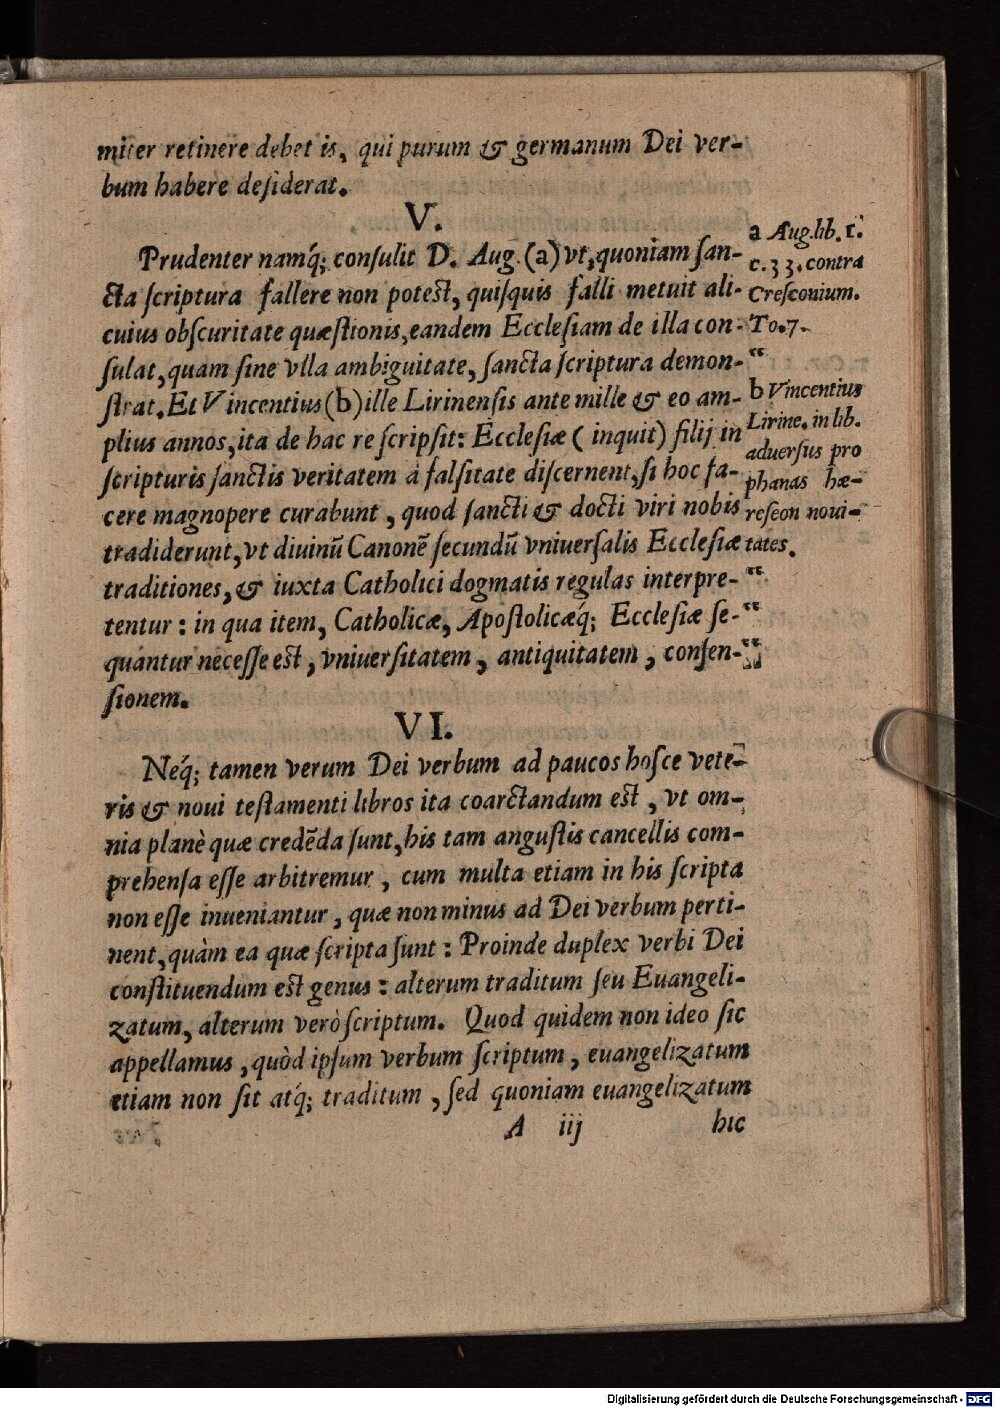 miter retinere debet is, qui purum & germanum Dei ver-
bum habere deſiderat.
V.
Prudenter namq́; conſulit D. Aug. (a) vt, quoniam ſan-
cta ſcriptura fallere non poteſt, quiſquis falli metuit ali-
cuius obſcuritate quæſtionis, eandem Eccleſiam de illa con-
ſulat, quam ſine vlla ambiguitate, ſancta ſcriptura demon-
ſtrat. Et Vincentius (b) ille Lirinenſis ante mille & eo am-
plius annos, ita de hac re ſcripſit: Eccleſiæ ( inquit) filij in
ſcripturis ſanctis veritatem à falſitate diſcernent, ſi hoc fa-
cere magnopere curabunt, quod ſancti & docti viri nobis
tradiderunt, vt diuinū Canonē ſecundū vniuerſalis Eccleſiæ
traditiones, & iuxta Catholici dogmatis regulas interpre-
tentur: in qua item, Catholicæ, Apoſtolicæq́; Eccleſiæ ſe-
quantur neceſſe eſt, vniuerſitatem, antiquitatem, conſen-
ſionem.
a Aug. lib. 1.
c. 33. contra
Creſconium.
To. 7.
“
b Vincentius
Lirine. in lib.
aduerſus pro
phanas hæ-
reſeon noui-
tates.
“
“
“
VI.
Neq́; tamen verum Dei verbum ad paucos hoſce vete-
ris & noui teſtamenti libros ita coarctandum eſt, vt om-
nia planè quæ credēda ſunt, his tam anguſtis cancellis com-
prehenſa eſſe arbitremur, cum multa etiam in his ſcripta
non eſſe inueniantur, quæ non minus ad Dei verbum perti-
nent, quàm ea quæ ſcripta ſunt: Proinde duplex verbi Dei
conſtituendum eſt genus: alterum traditum ſeu Euangeli-
zatum, alterum verò ſcriptum. Quod quidem non ideo ſic
appellamus, quòd ipſum verbum ſcriptum, euangelizatum
etiam non ſit atq́; traditum, ſed quoniam euangelizatum
A iij hic
Digitalisierung gefördert durch die Deutsche Forschungsgemeinschaft - DFG